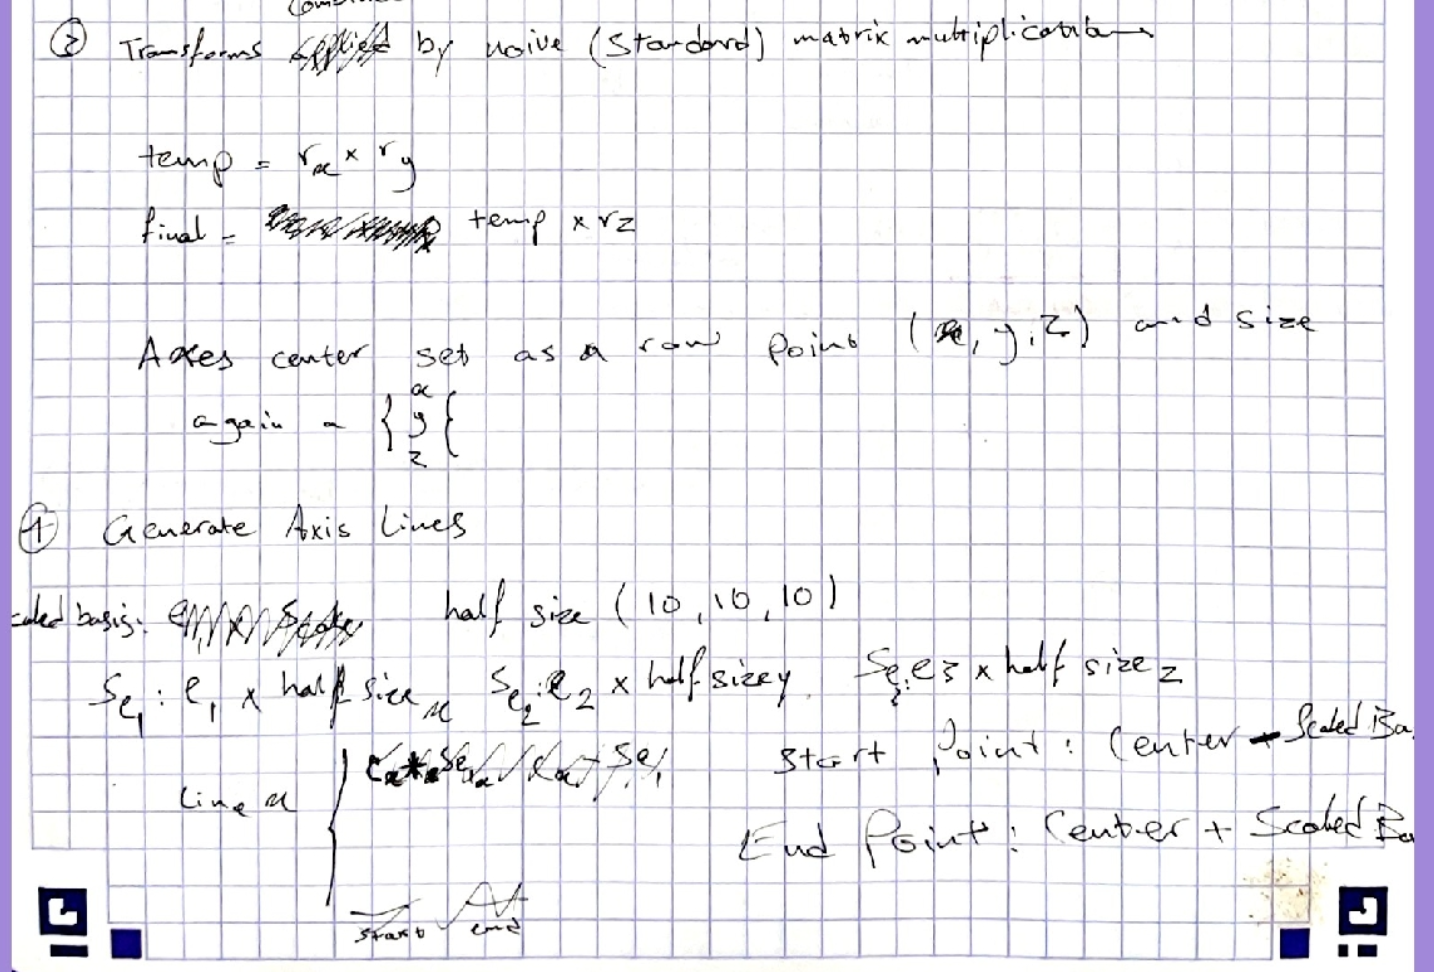 ③ Transforms by naive (standard) matrix multiplication
temp = rx × ry
final = temp × rz
Axes center set as a row point (x, y, z) and size
again = { x y z {
④ Generate Axis Lines
basis: half size (10, 10, 10)
Se1 : e1 × half size x Se2 : e2 × half size y Se3 : e3 × half size z
Start Point : Center - Scaled Ba
Line x {
End Point : Center + Scaled Ba
start end